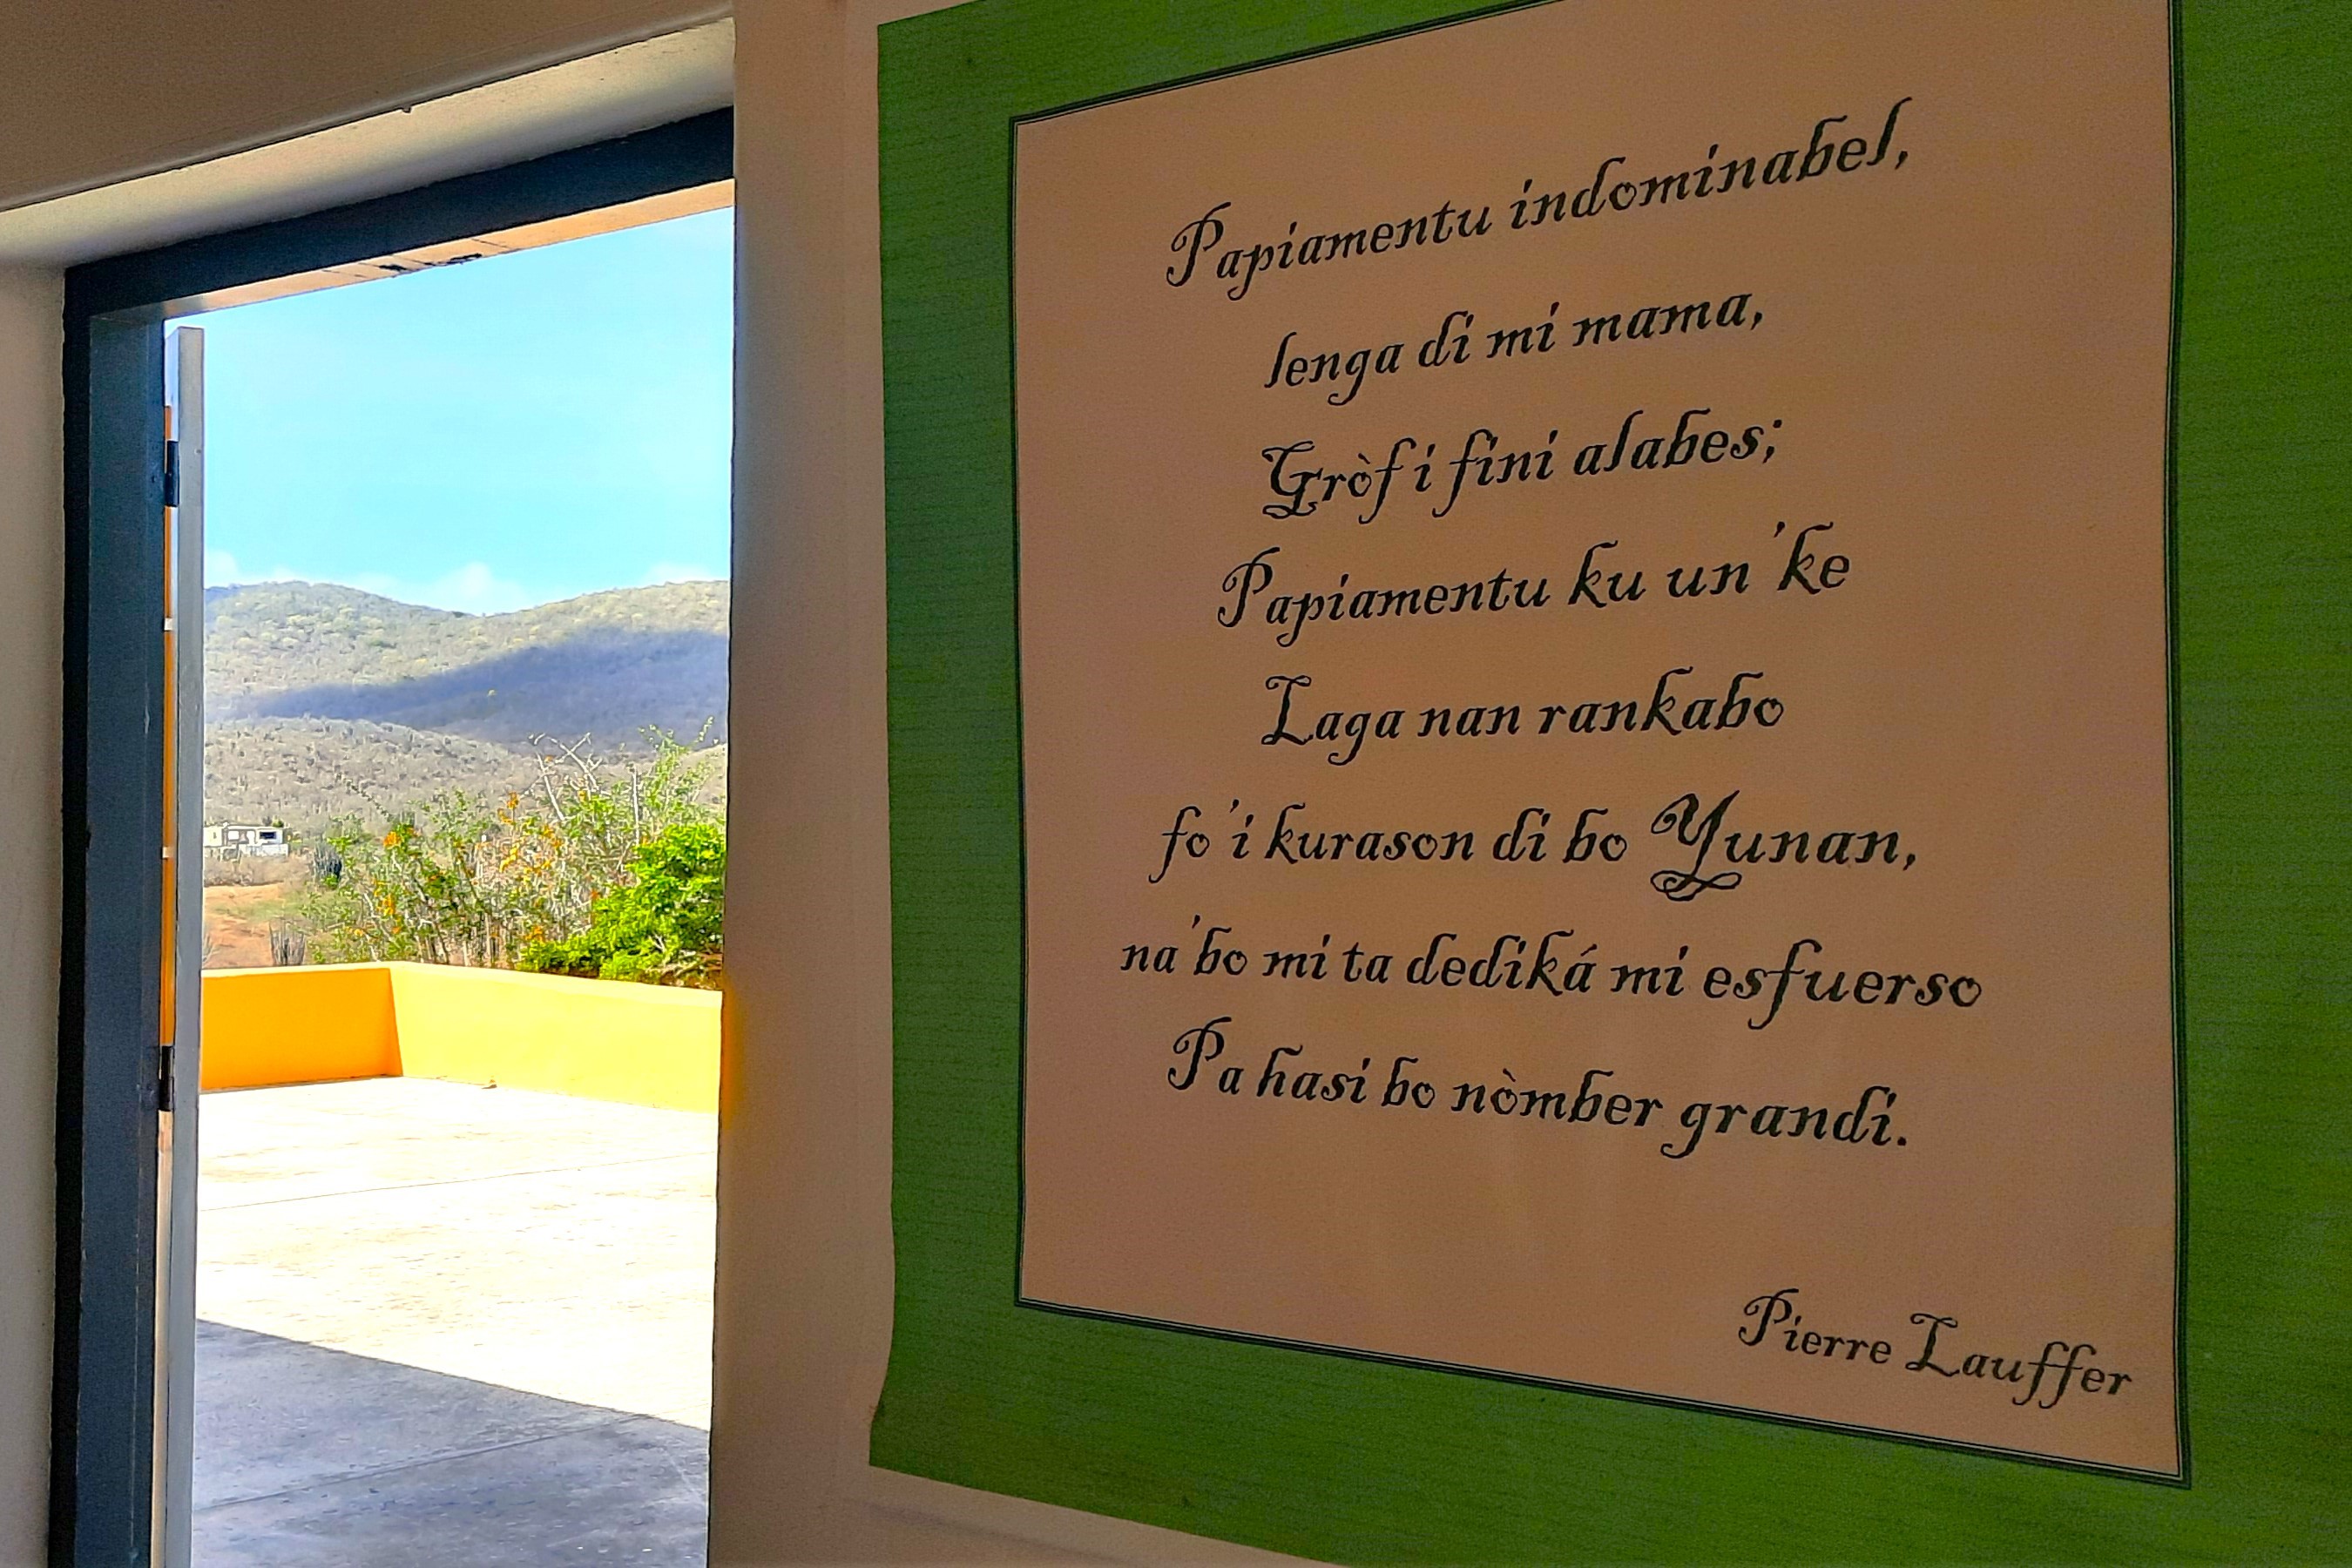 Papiamentu indominabel,
lenga di mi mama,
Gròf i fini alabes;
Papiamentu ku un'ke
Laga nan rankabo
fo'i kurason di bo Yunan,
na'bo mi ta dediká mi esfuerso
Pa hasi bo nòmber grandi.
Pierre Lauffer